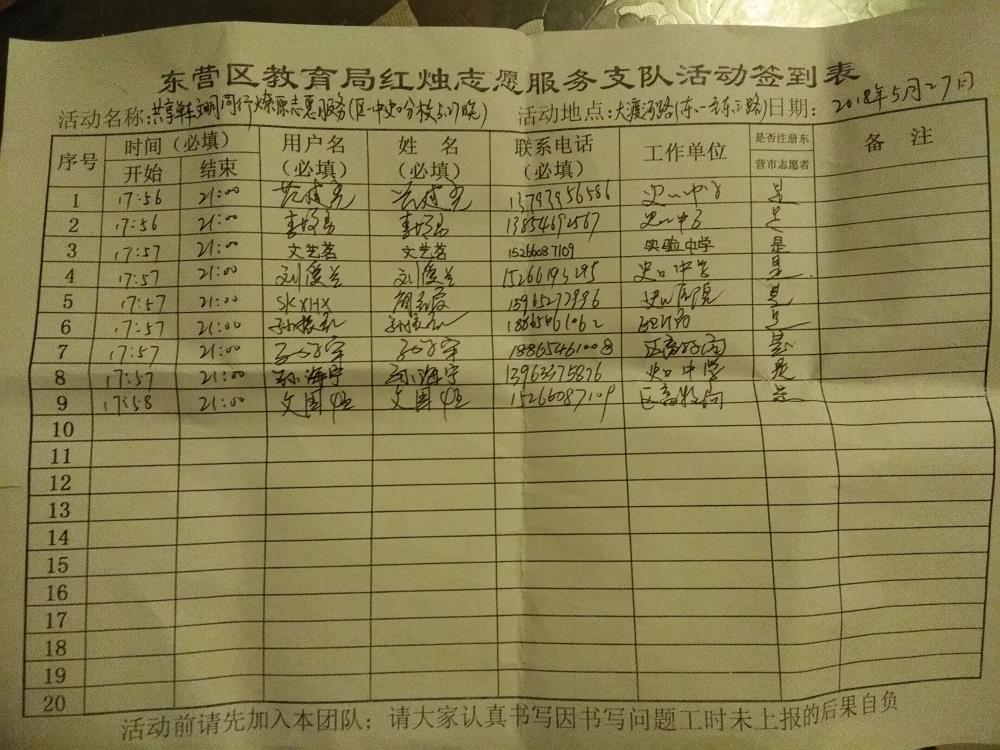 东营区教育局红烛志愿服务支队活动签到表
活动名称:共享单车文明同行燎原志愿服务(区一中史口分校5.27晚) 活动地点:大渡河路(东一至东三路) 日期: 2018年5月27日
序号 时间（必填） 用户名（必填） 姓 名（必填） 联系电话（必填） 工作单位 是否注册东营市志愿者 备 注
开始 结束
1 17:56 21:00 13793956586 是
2 17:56 21:00 13854692567 是
3 17:57 21:00 文艺茗 文艺茗 15266087109 实验中学 是
4 17:57 21:00 刘俊兰 刘俊兰 15266193295 史口中学 是
5 17:57 21:00 SKXHX 15965272996 史口医院 是
6 17:57 21:00 是
7 17:57 21:00 18865461008 是
8 17:57 21:00 孙海宁 孙海宁 13963375876 史口中学 是
9 17:58 21:00 文国 文国 15266087109 是
10
11
12
13
14
15
16
17
18
19
20
活动前请先加入本团队；请大家认真书写因书写问题工时未上报的后果自负